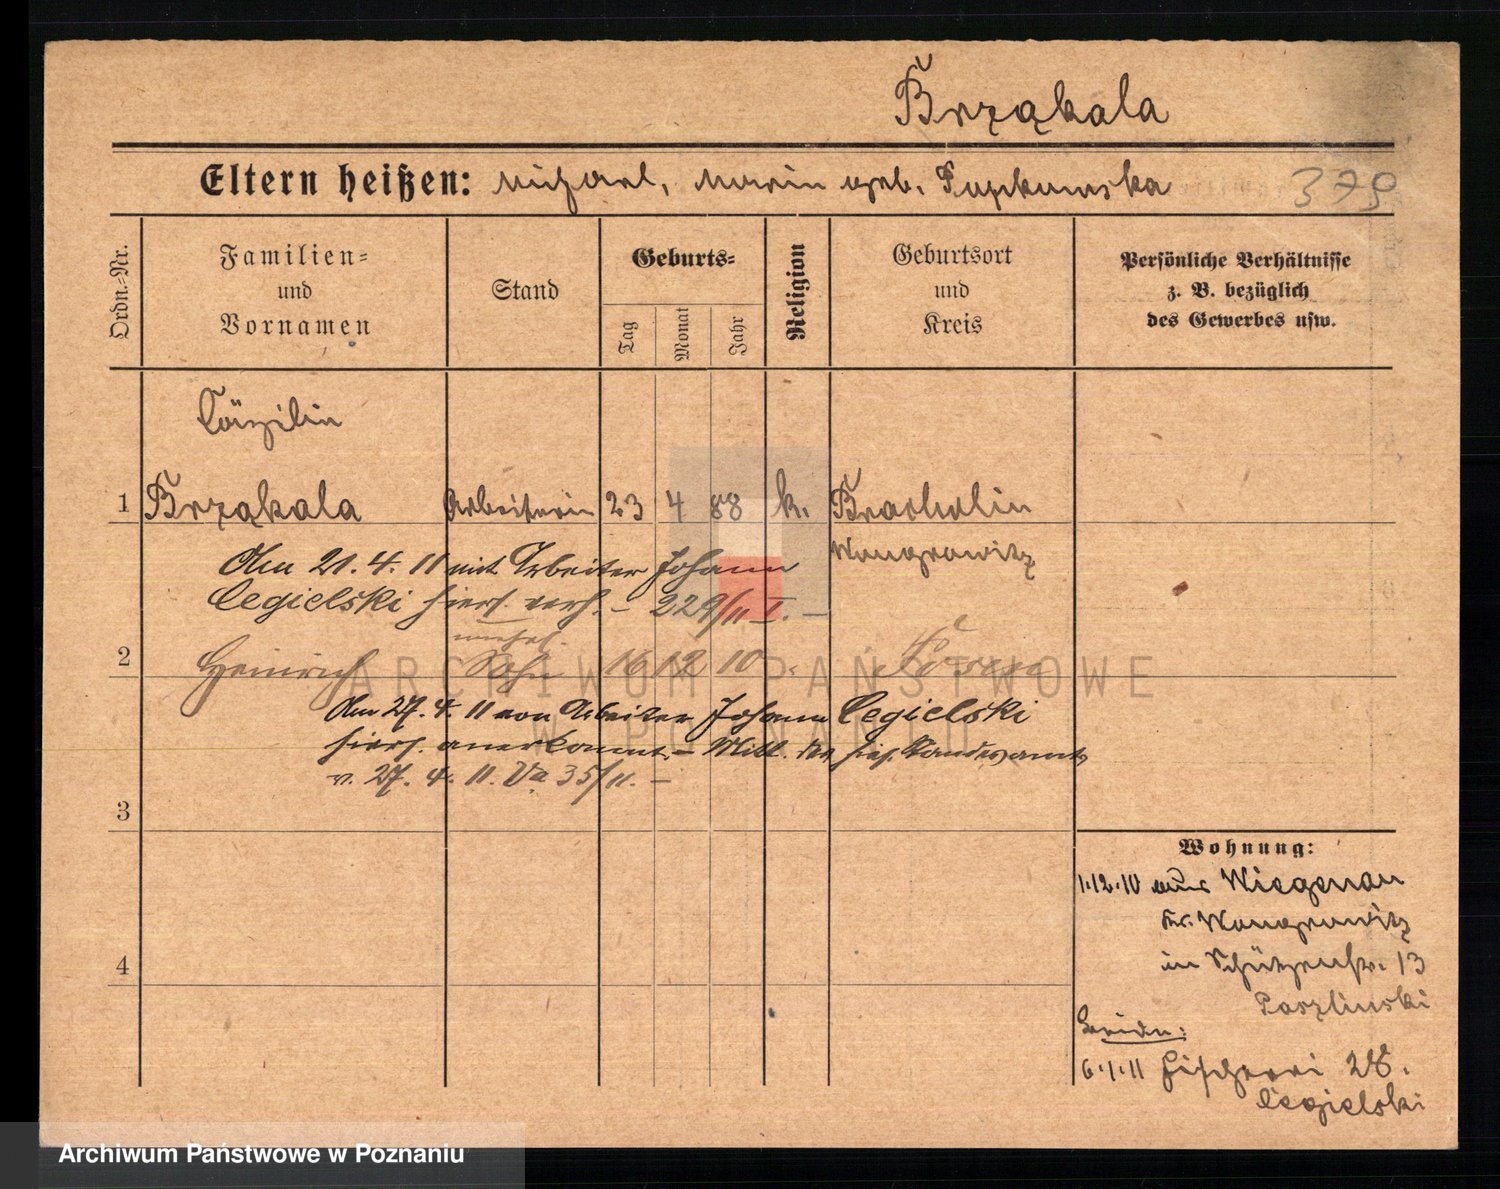 Brząkala
Eltern heißen: Michael, Marie geb. Pupkowska 379
Ordn.-Nr.
Familien- und Vornamen
Stand
Geburts-
Tag
Monat
Jahr
Religion
Geburtsort und Kreis
Persönliche Verhältnisse
z. B. bezüglich
des Gewerbes usw.
Cäzilie
1 Brząkala Arbeiterin 23 4 88 k. Bracholin
Wongrowitz
Am 21. 4. 11 mit Arbeiter Johann
Cegielski hiers. verh. – 229/11 I. –
unehel.
2 Heinrich Sohn 16 12 10 Posen
Am 27. 4. 11 von Arbeiter Johann Cegielski
hiers. anerkannt. – Mitt. des hies. Standesamts
v. 27. 4. 11. Va 35/11. –
3
4
Wohnung:
1.12.10 aus Wiegenau
Kr. Wongrowitz
in Schützenstr. 13
Paszlinski
Beide:
6.1.11 Fischerei 28.
Cegielski
ARCHIWUM PAŃSTWOWE
W POZNANIU
Archiwum Państwowe w Poznaniu